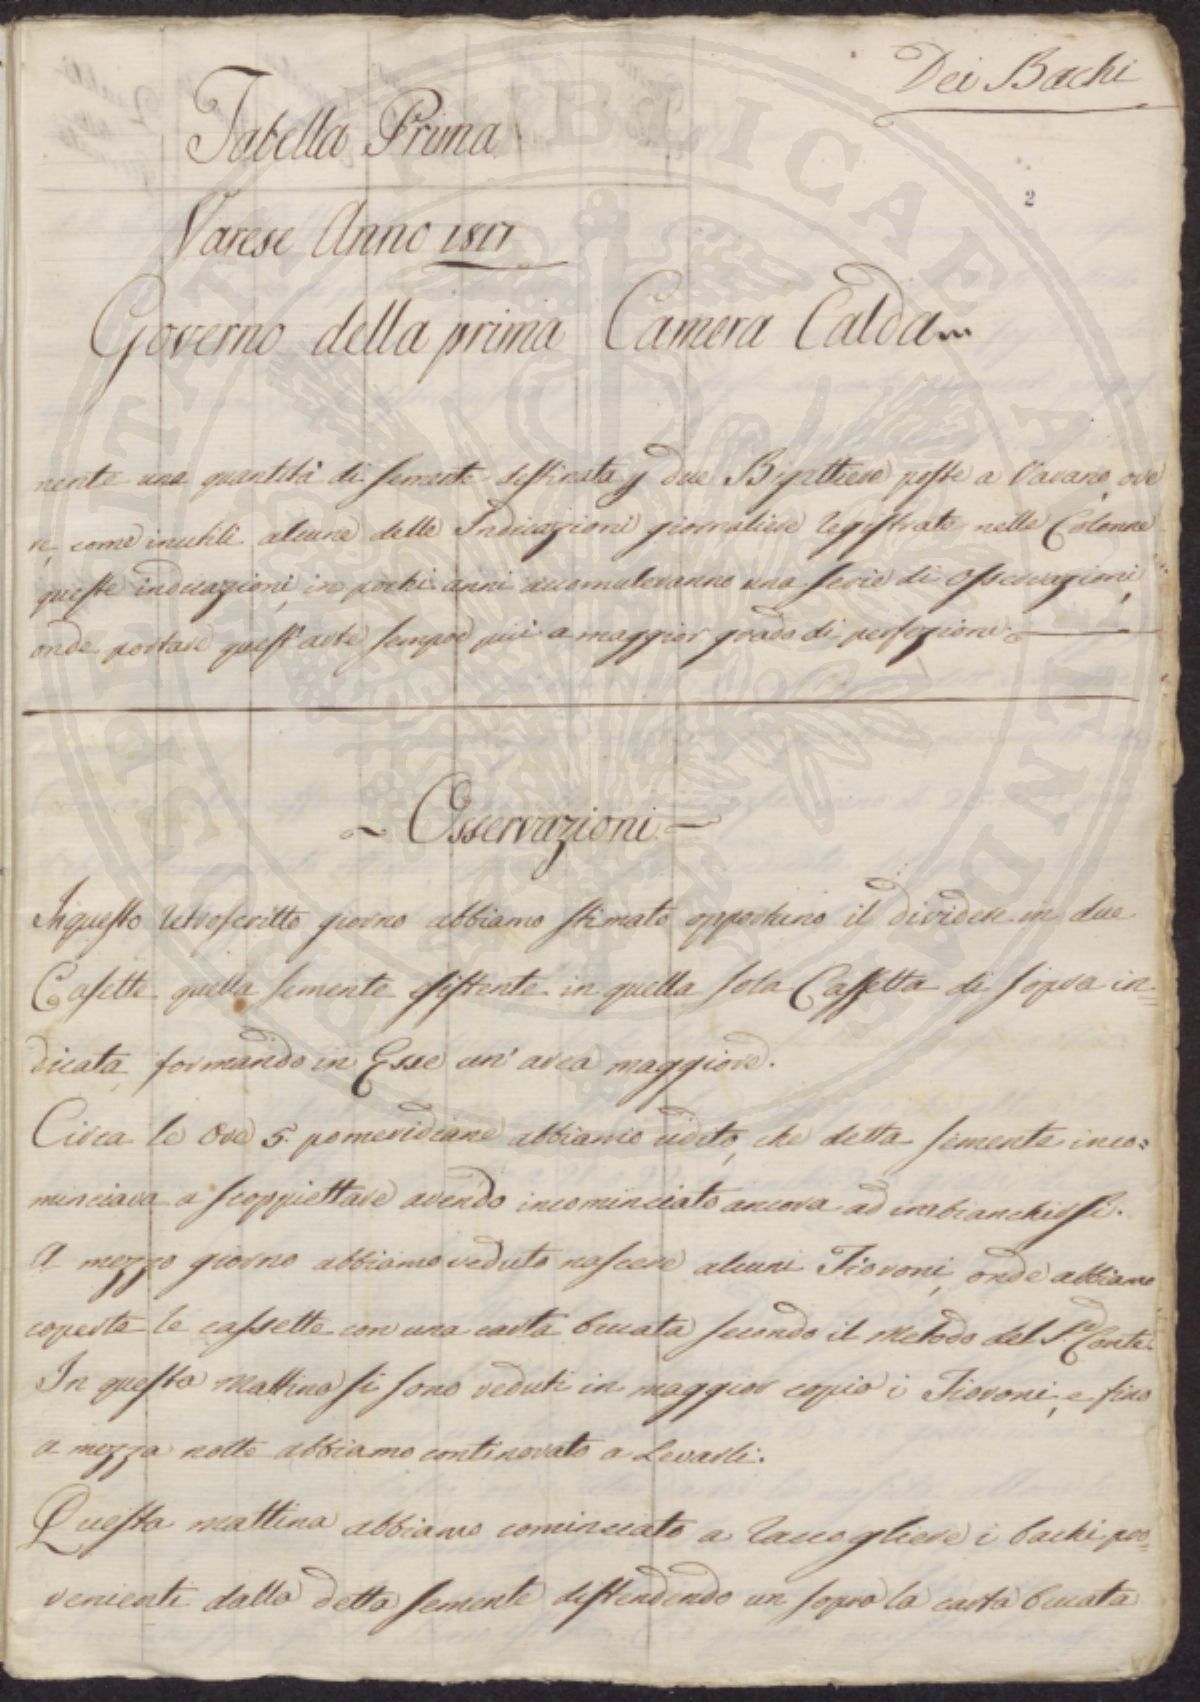 Dei Bachi
Tabella Prima
2
Varese Anno 1817
Governo della prima Camera Calda
nente una quantità di semente destinata p due Bigattiere poste a Vavano, ove
come inutili alcune delle Indicazioni giornaliere registrate nelle Colonne
queste indicazioni, in pochi anni accumuleranno una serie di osservazioni,
onde portare quest'arte sempre più a maggior grado di perfezione.
~ Osservazioni ~
In questo retroscritto giorno abbiamo stimato opportuno il dividere in due
Casette quella semente esistente in quella sola Cassetta di sopra in=
dicata, formando in Esse un' area maggiore.
Circa le Ore 5. pomeridiane abbiamo udito, che detta semente inco=
minciava a scoppiettare avendo incominciato ancora ad imbianchirsi.
A mezzo giorno abbiamo veduto nascere alcuni Fioroni, onde abbiamo
coperte le cassette con una carta bucata secondo il metodo del Sr. Conte.
In questa mattina si sono veduti in maggior copia i Fioroni, e fino
a mezza notte abbiamo continovato a Levarli.
Questa mattina abbiamo cominciato a raccogliere i bachi pro=
venienti dalla detta semente distendendo un sopra la carta bucata